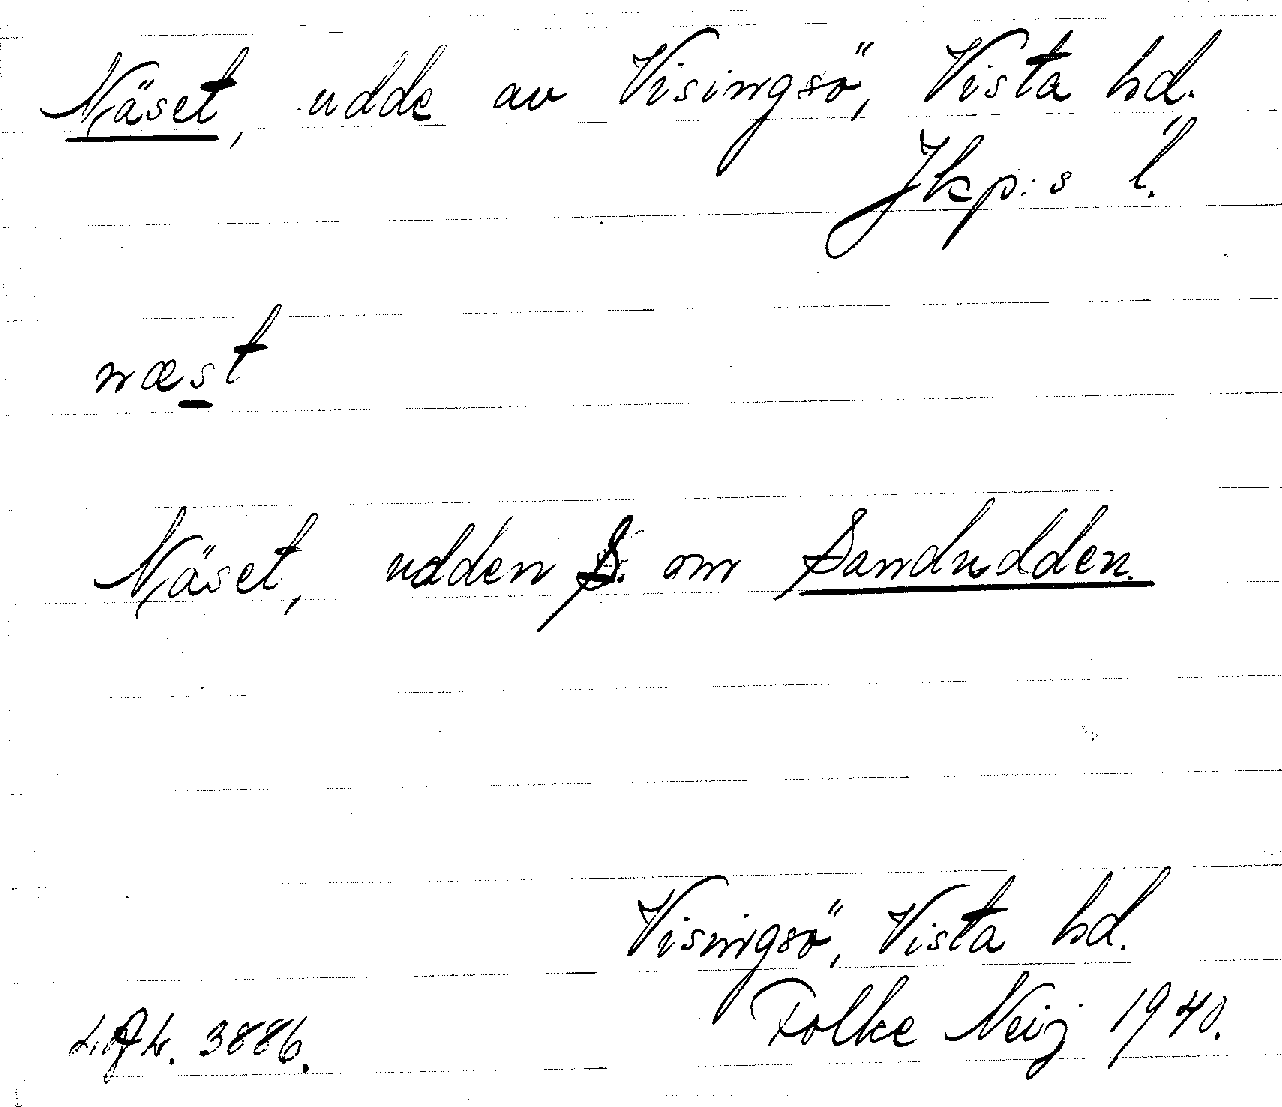 Näset, udde av Visingsö, Vista hd.
Jkp:s l.
næst
Näset, udden S. om Sandudden.
Visingsö, Vista hd.
Folke Neij 1940.
3886.